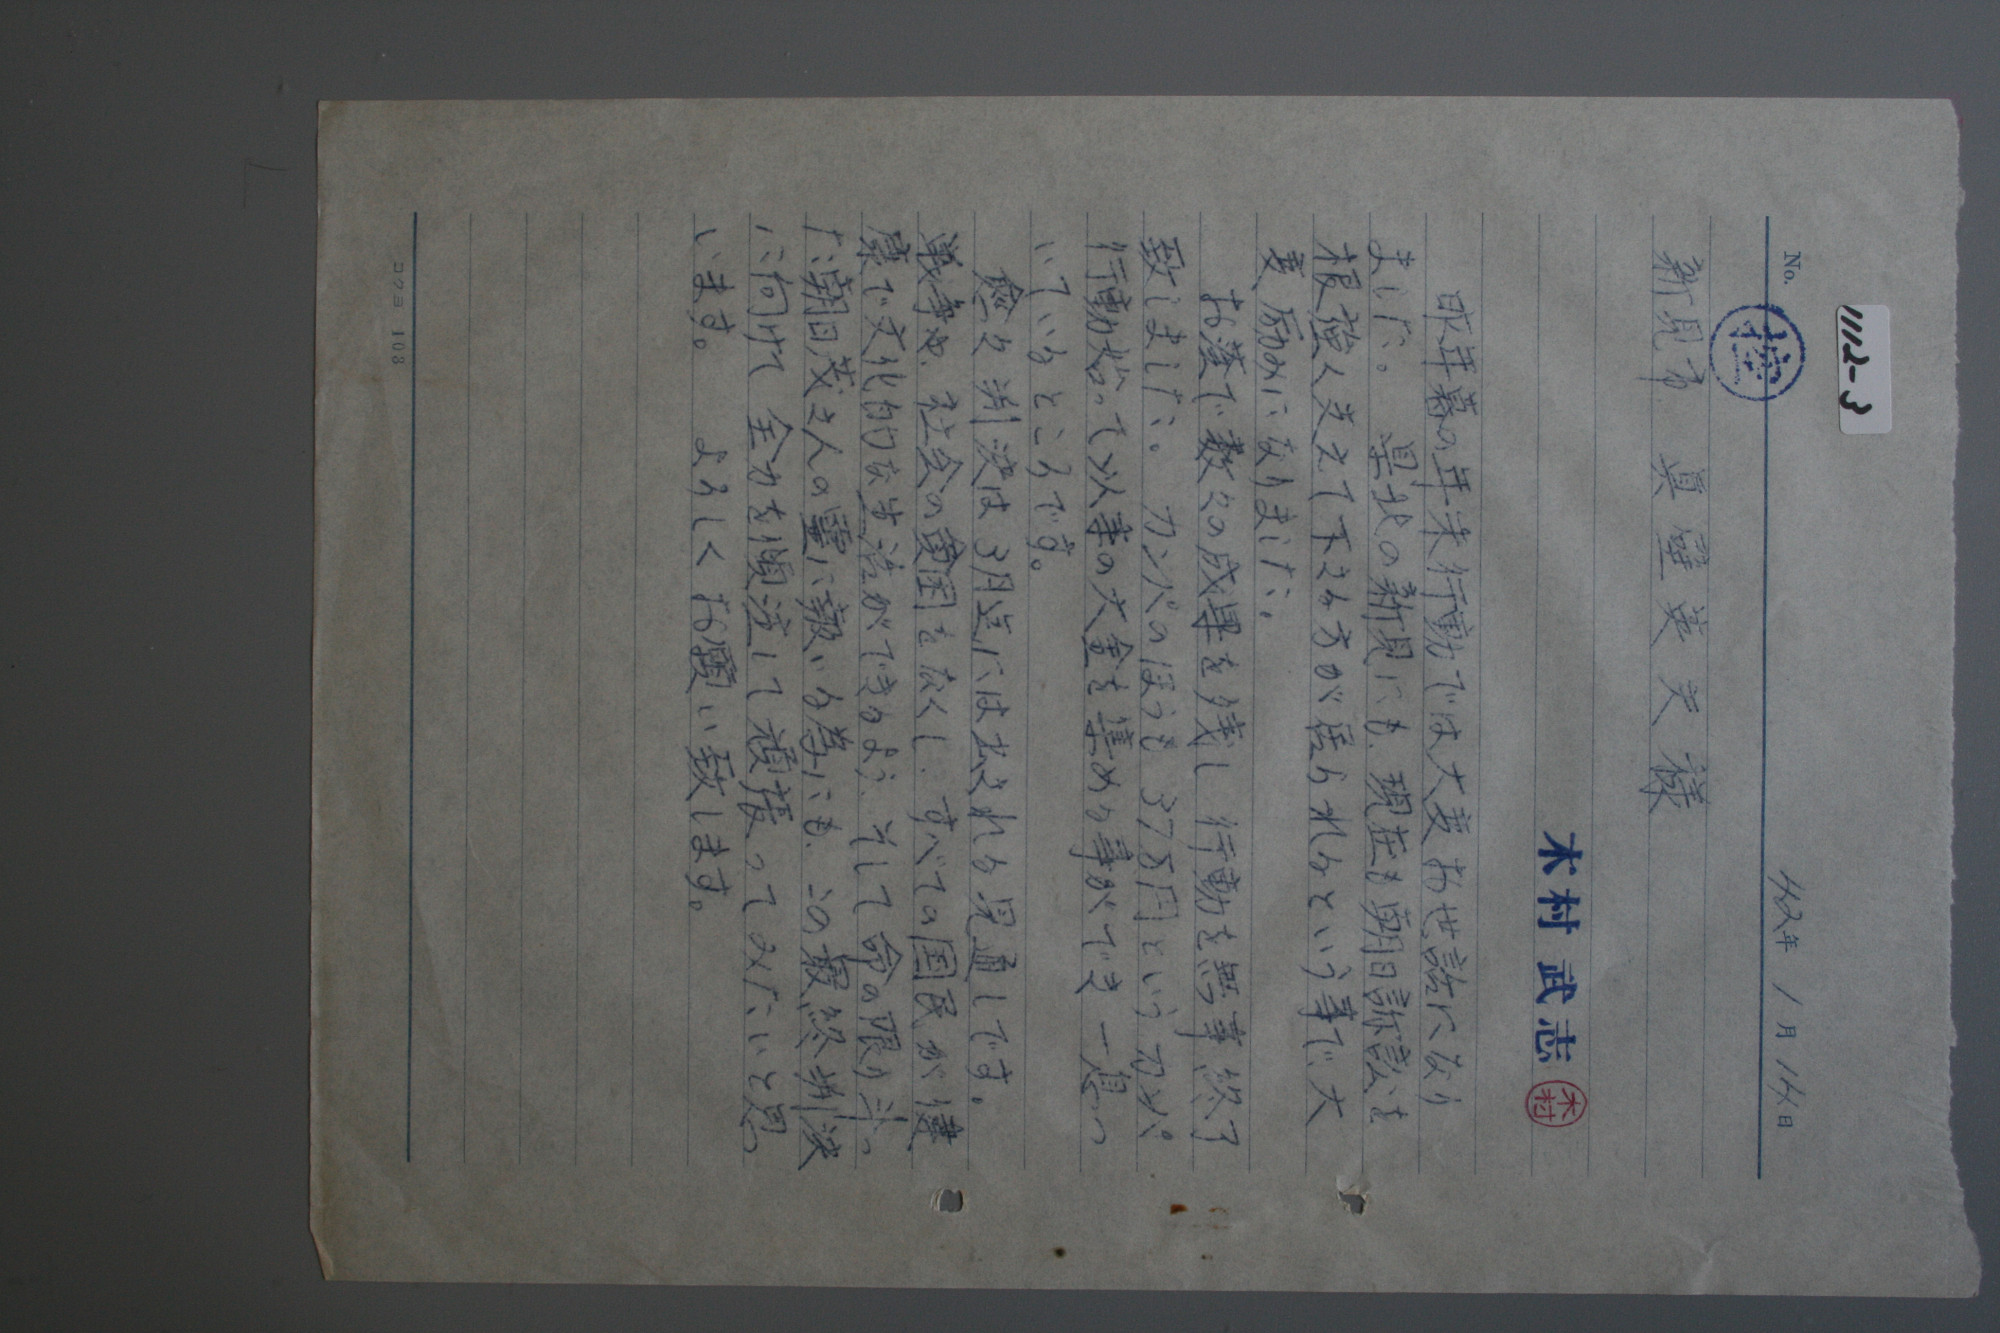 1112-3
No.
控
42年 1月 14日
新見市 真壁英夫様
木村武志
木村
昨年暮の年末行動では大変お世話になり
ました。県北の新見にも、現在も朝日訴訟を
根強く支えて下さる方が居られるという事で大
変励みになりました。
お蔭で数々の成果を残し行動を無事終了
致しました。カンパのほうも37万円というカンパ
行動始って以来の大金を集める事ができ一息つ
いているところです。
愈々判決は3月迄には出される見通しです。
戦争や、社会の貧困をなくし、すべての国民が健
康で文化的な生活ができるよう、そして命の限り斗っ
た朝日茂さんの霊に報いる為にも、この最終判決
に向けて全力を傾注して頑張ってみたいと思
います。 よろしくお願い致します。
コクヨ 108